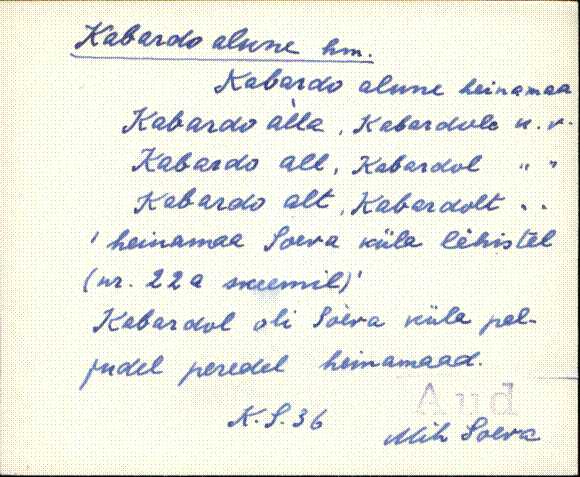 Kabardo alune hm.
Kabardo alune heinamaa
Kabardo àlla, Kabardole u. v.
Kabardo all, Kabardol " "
Kabardo alt, Kabardolt " "
' heinamaa Soeva küla lähistel
(nr. 22a skeemil)'
Kabardol oli Soeva küla pal-
judel peredel heinamaad.
Aud
K. S. 36
Mih Soeva